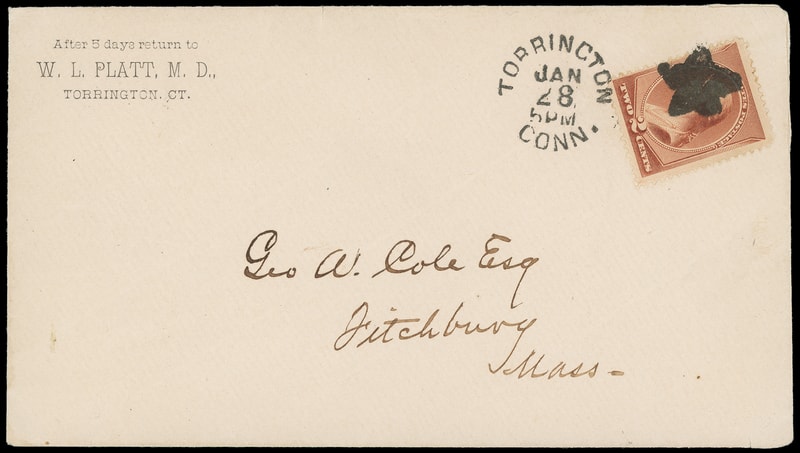 After 5 days return to
W. L. PLATT, M. D.,
TORRINGTON, CT.
TORRINGTON
JAN
28
5PM
CONN.
TWO 2 CENTS
Geo W. Cole Esq
Fitchburg
Mass-